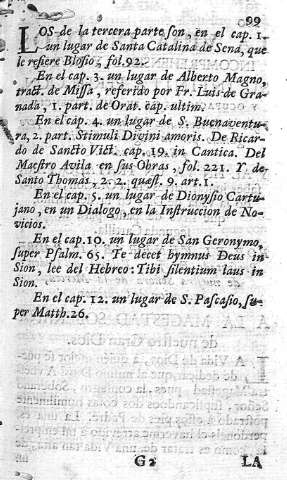 99
LOS de la tercera parte son, en el cap. 1.
un lugar de Santa Catalina de Sena, que
le refiere Blosio, fol. 92.
En el cap. 3. un lugar de Alberto Magno,
tract. de Missa, referido por Fr. Luis de Gra-
nada, 1. part. de Orat. cap. ultim.
En el cap. 4. un lugar de S. Buenaventu-
ra, 2. part. Stimuli Divini amoris. De Ricar-
do de Sancto Vict. cap. 19. in Cantica. Del
Maestro Avila en sus Obras, fol. 221. Y de
Santo Thomàs, 2. 2. quæst. 9. art. 1.
En el cap. 5. un lugar de Dionysio Cartu-
jano, en un Dialogo, en la Instruccion de No-
vicios.
En el cap. 10. un lugar de San Geronymo,
super Psalm. 65. Te decet hymnus Deus in
Sion, lee del Hebreo: Tibi silentium laus in
Sion.
En el cap. 12. un lugar de S. Pascasio, su-
per Matth. 26.
G2 LA